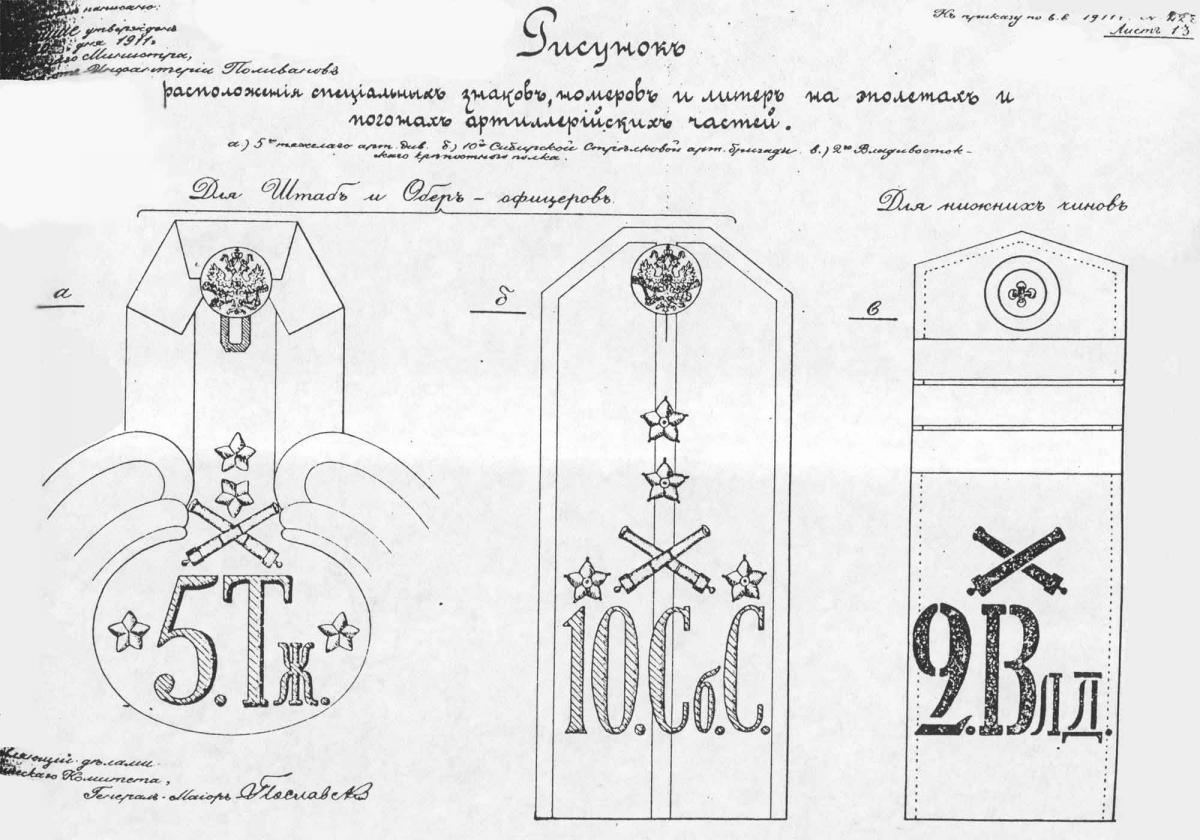 написано:
утвержденъ
дня 1911г.
Министра,
Инфантеріи Поливановъ
Къ приказу по в.в 1911г. №
Листъ 13
Рисунокъ
расположенія спеціальныхъ знаковъ, номеровъ и литеръ на эполетахъ и
погонахъ артиллерійскихъ частей.
а) 5го тяжелаго арт. див. б) 10ой Сибирской Стрѣлковой арт. бригады. в.) 2го Владивосток-
скаго крѣпостного полка.
Для Штабъ и Оберъ - офицеровъ.
Для нижнихъ чиновъ
а
б
в
5.Тж.
10.Сб.С.
2.Влд.
дѣлами
Комитета,
Генералъ-Маіоръ